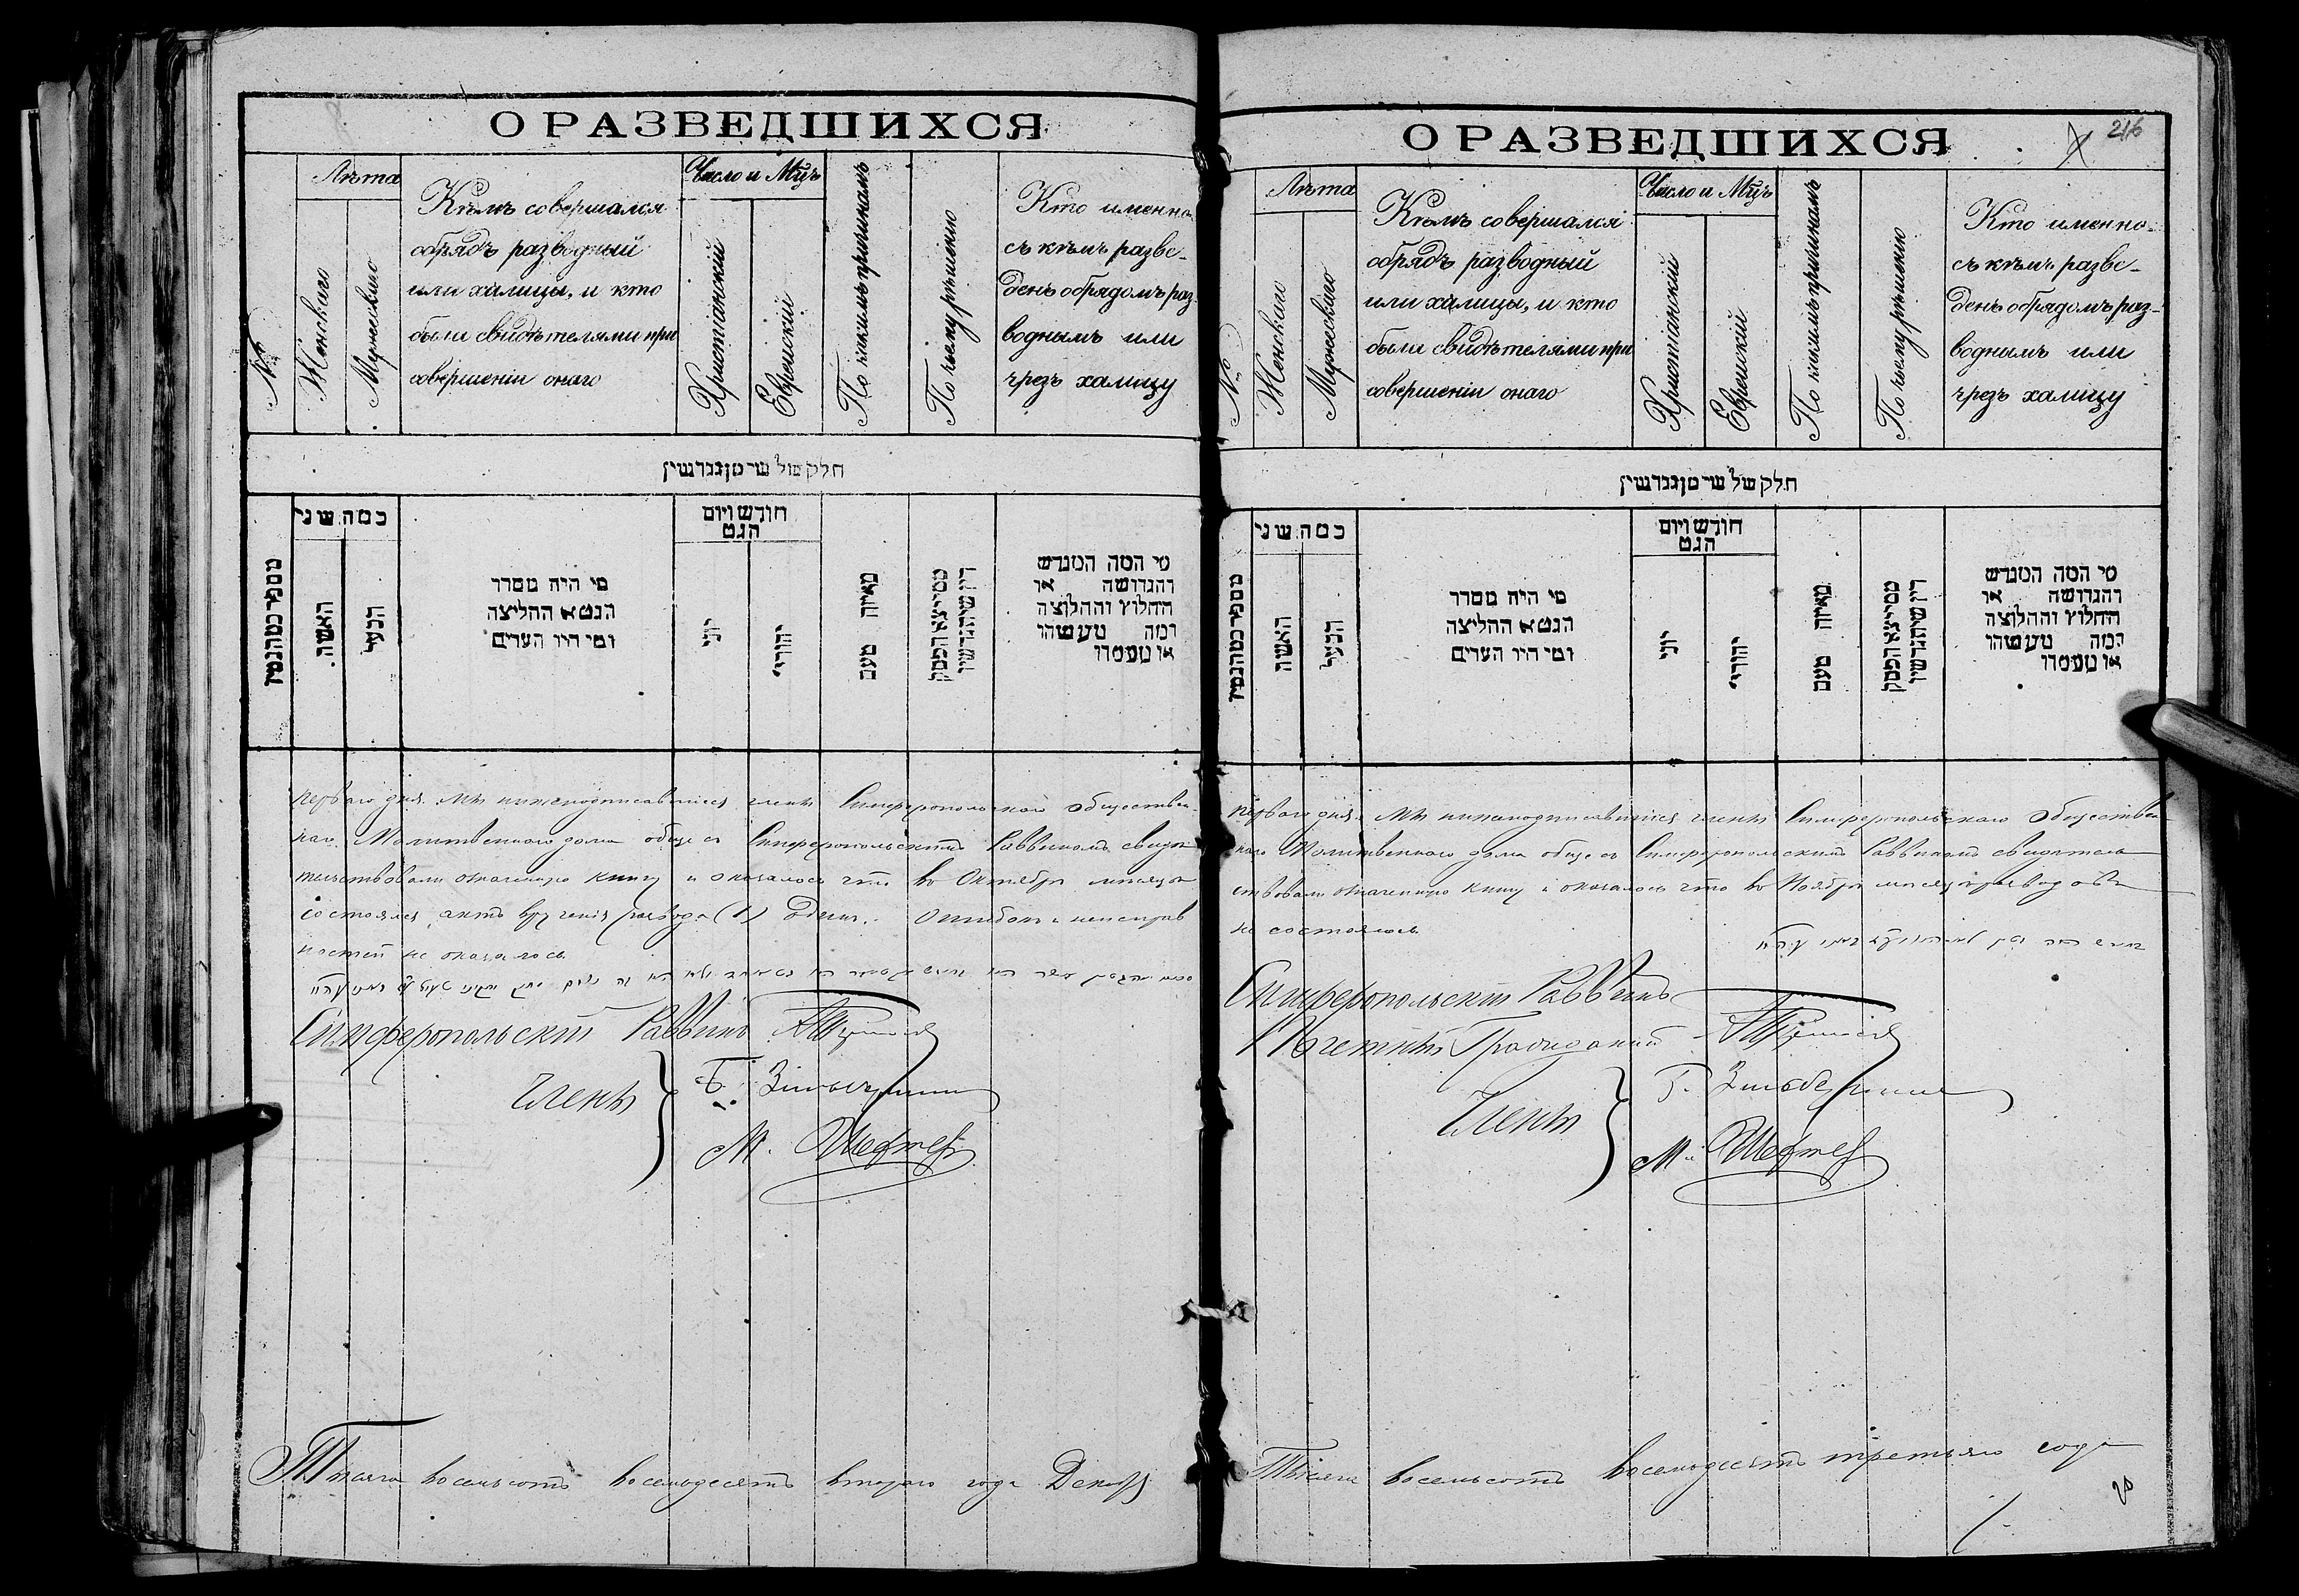 О РАЗВЕДШИХСЯ
№
Лѣта
Женскаго
Мужескаго
Кѣмъ совершался
обрядъ разводный
или халицы, и кто
были свидѣтелями при
совершеніи онаго
Число и Мцъ
Христіанскій
Еврейскій
По какимъ причинамъ
По чьему рѣшенію
Кто именно
съ кѣмъ разве-
денъ обрядомъ раз-
воднымъ или
чрезъ халицу
חלק של שי מן גגרשין
מספר כמה הגטין
כמה שני
האשה
הבעל
מי היה מסדר
הגט א ההליצה
ומי היו העדים
חודש ויום
הגט
יוני
יהודי
מאיזה טעם
מי המה המגרש
והגרושה או
החלוץ וההלוצה
ומה מעשהו
או מעמדו
перваго дня. Мы нижеподписавшіеся члены Симферопольскаго Обществен-
наго Молитвеннаго дома обще съ Симферопольскимъ Раввиномъ свидѣ-
тельствовали означенную книгу и оказалось что въ Октябрѣ мѣсяцѣ
состоялся актъ врученія развода (1) Одинъ. Ошибокъ и неисправ
ностей не оказалось
Симферопольскій Раввинъ
Члены
М. Шефтел
Тысяча восемьсотъ восемьдесятъ втораго года Декабря
О РАЗВЕДШИХСЯ
216
№
Лѣта
Женскаго
Мужескаго
Кѣмъ совершался
обрядъ разводный
или халицы, и кто
были свидѣтелями при
совершеніи онаго
Число и Мцъ
Христіанскій
Еврейскій
По какимъ причинамъ
По чьему рѣшенію
Кто именно
съ кѣмъ разве-
денъ обрядомъ раз-
воднымъ или
чрезъ халицу
חלק של שי מן גגרשין
מספר כמה הגטין
כמה שני
האשה
הבעל
מי היה מסדר
הגט א ההליצה
ומי היו העדים
חודש ויום
הגט
יוני
יהודי
מאיזה טעם
מי המה המגרש
והגרושה או
החלוץ וההלוצה
ומה מעשהו
או מעמדו
перваго дня. Мы нижеподписавшіеся члены Симферопольскаго Обществен
наго Молитвеннаго дома обще съ Симферопольскимъ Раввиномъ свидѣтель
ствовали означенную книгу и оказалось что въ Ноябрѣ мѣсяцѣ разводовъ
не состоялось
Симферопольскій Раввинъ
Почетный Гражданинъ
Члены
Зильбер
М. Шефтел
Тысяча восемьсотъ восемьдесятъ третьяго года